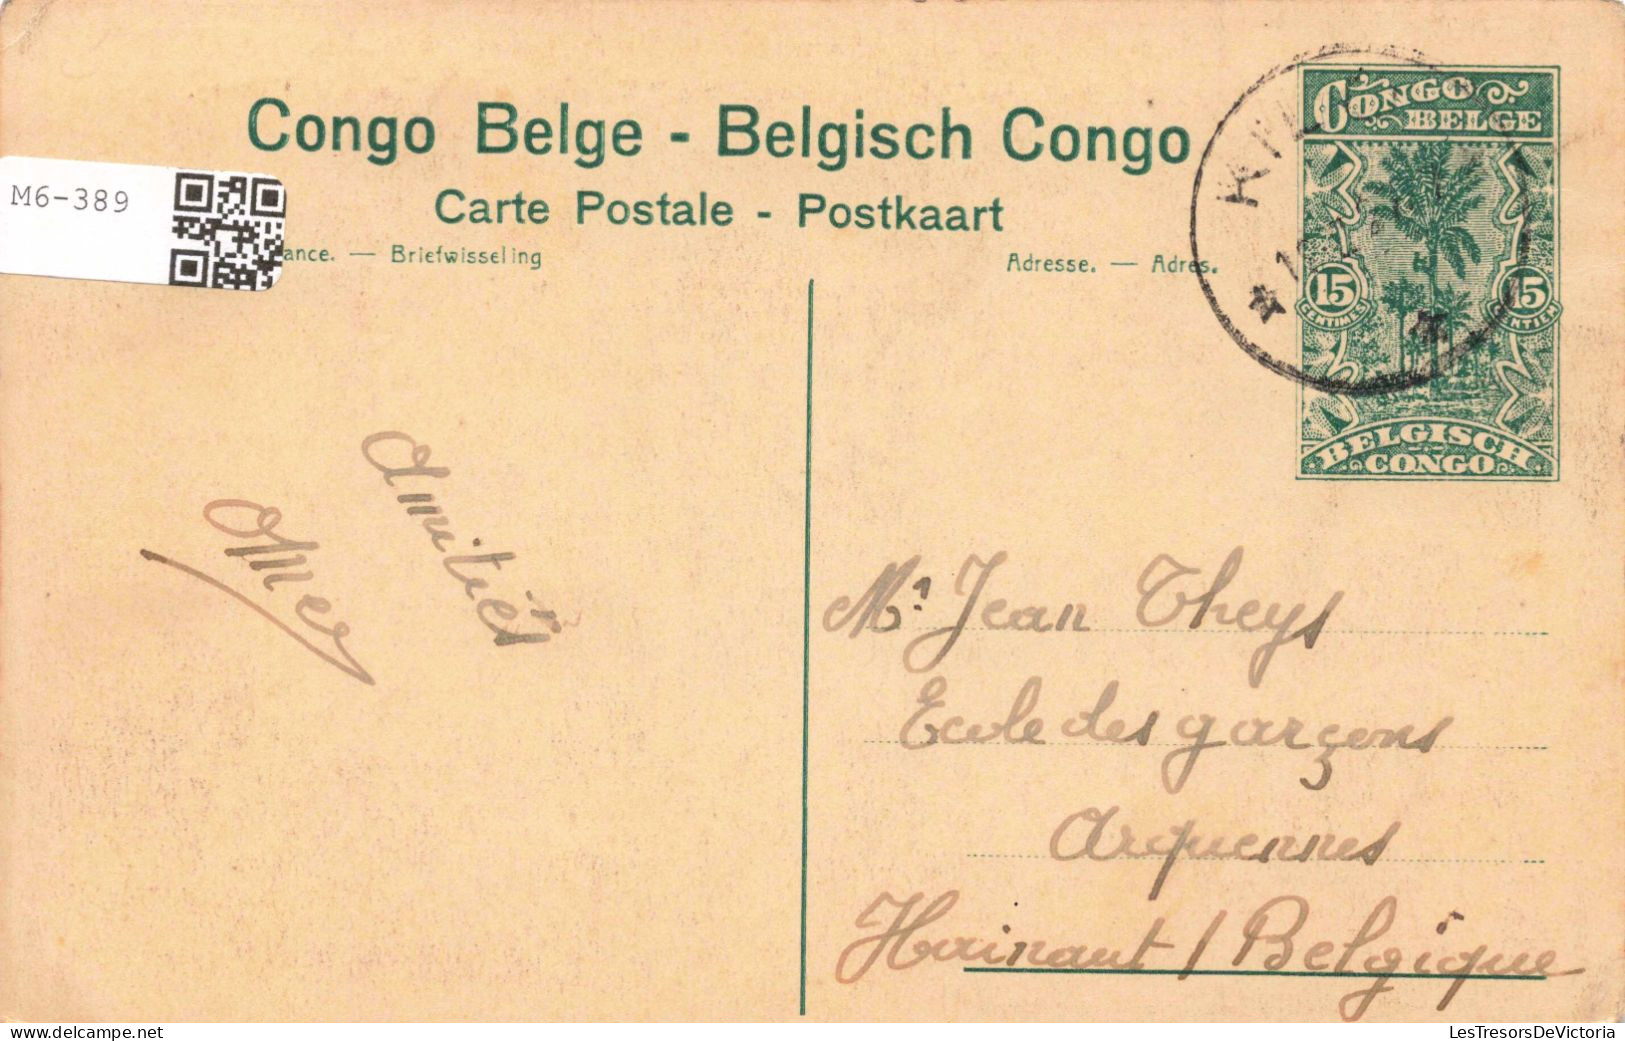 Congo Belge - Belgisch Congo
Carte Postale - Postkaart
M6-389
ance. — Briefwisseling
Adresse. — Adres.
CONGO
BELGE
15
CENTIMES
15
CENTIEM
BELGISCH
CONGO
Amitiés
Omer
Mr Jean Theys
Ecole des garçons
Arquennes
Hainaut / Belgique
LesTresorsDeVictoria